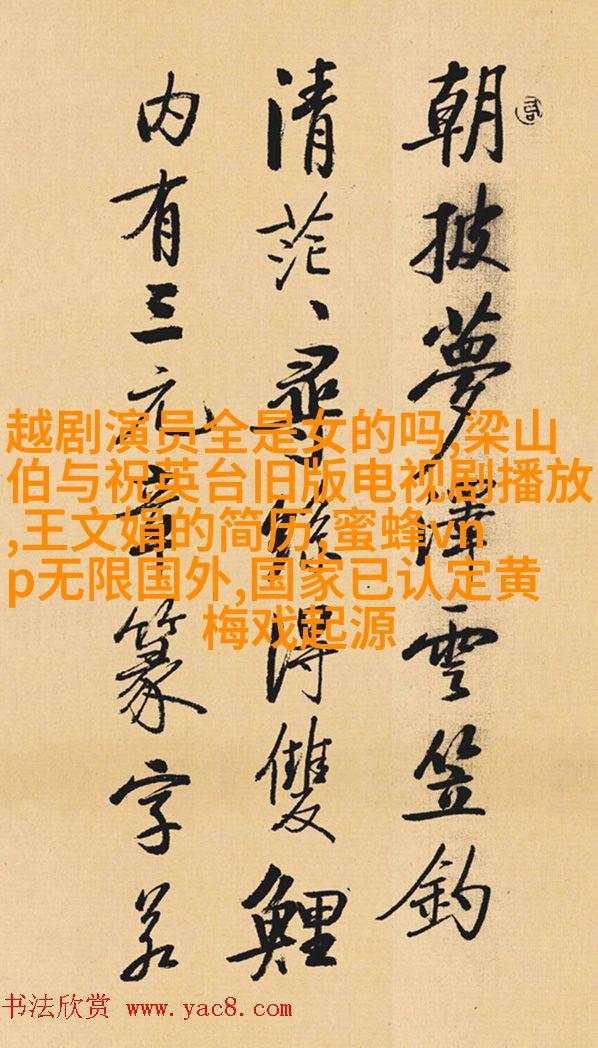 朝披夢澤雲笠釣
清茫、尋絲得雙鯉
内有三元章篆字若
越剧演员全是女的吗,梁山
伯与祝英台旧版电视剧播放
,王文娟的简历,蜜蜂vn
p无限国外,国家已认定黄
梅戏起源
书法欣赏 www.yac8.com